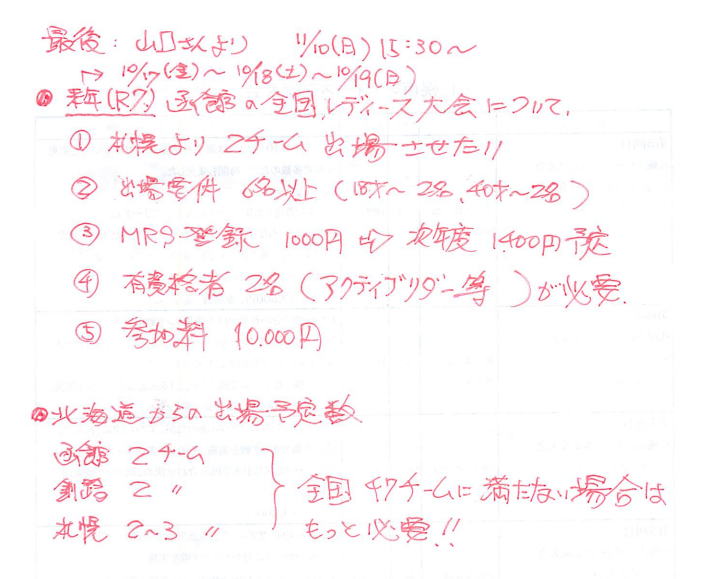 最後: 山口さんより 11/10(日) 15:30〜
↳ 10/17(金)〜10/18(土)〜10/19(日)
◎ 来年(R7) 函館の全国レディース大会について、
① 札幌より 2チーム 出場させたい
② 出場要件 6名以上 (18才〜 2名、40才〜2名)
③ MRS登録 1000円 ⇨ 次年度 1,400円予定
④ 有資格者 2名 (アクティブリーダー等 )が必要.
⑤ 参加料 10.000円
◎北海道からの出場予定数
函館 2チーム
釧路 2 〃
札幌 2〜3 〃
全国 47チームに満たない場合は
もっと必要!!